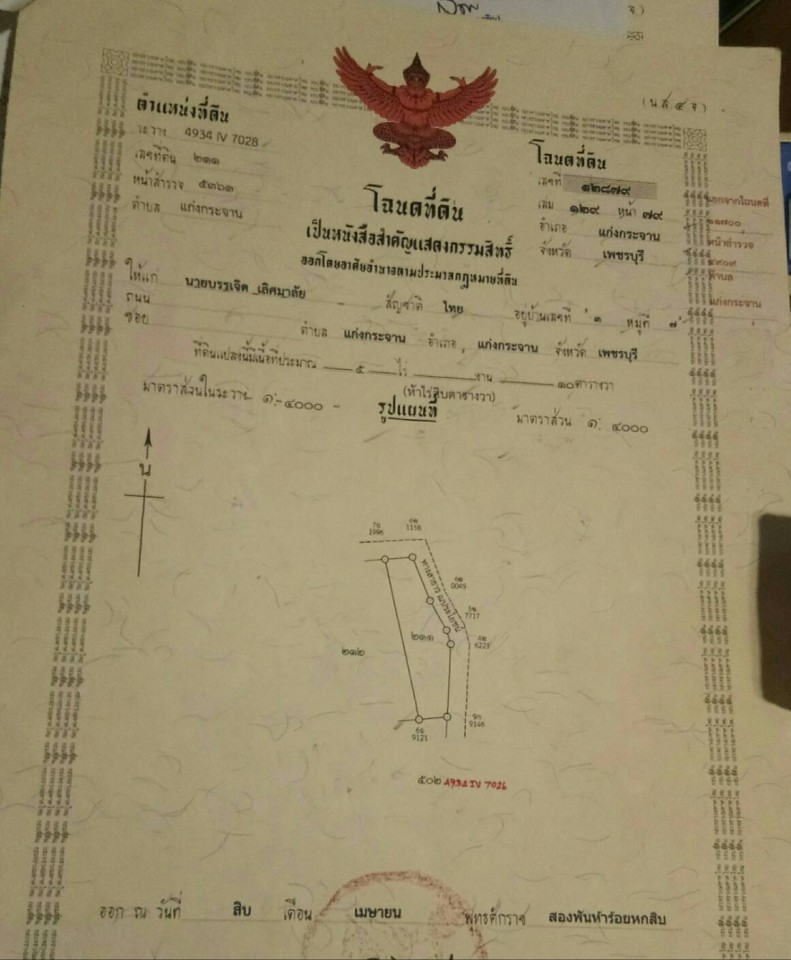 (น.ส. ๔ จ.)
ตำแหน่งที่ดิน
ระวาง 4934 IV 7028
เลขที่ดิน ๒๑๑
หน้าสำรวจ ๕๓๖๑
ตำบล แก่งกระจาน
โฉนดที่ดิน
เลขที่ ๑๒๘๗๙
เล่ม ๑๒๙ หน้า ๗๙
อำเภอ แก่งกระจาน
จังหวัด เพชรบุรี
ออกจากโฉนดที่
๑๑๗๐๐
หน้าสำรวจ
๔๙๐๙
ตำบล
แก่งกระจาน
โฉนดที่ดิน
เป็นหนังสือสำคัญแสดงกรรมสิทธิ์
ออกโดยอาศัยอำนาจตามประมวลกฎหมายที่ดิน
ให้แก่ นายบรรเจิด เลิศมาลัย - สัญชาติ ไทย อยู่บ้านเลขที่ ๑ หมู่ที่ ๗
ถนน
ซอย ตำบล แก่งกระจาน อำเภอ แก่งกระจาน จังหวัด เพชรบุรี
ที่ดินแปลงนี้มีเนื้อที่ประมาณ ๕ ไร่ งาน ๑๐ ตารางวา
(ห้าไร่สิบตารางวา)
มาตราส่วนในระวาง ๑:๔๐๐๐ รูปแผนที่ มาตราส่วน ๑: ๔๐๐๐
น
1996
1158
0049
7717
6223
9146
9121
ทางสาธารณประโยชน์
๒๑๒
๒๑๑
๕๐๒ 4934 IV 7026
ออก ณ วันที่ สิบ เดือน เมษายน พุทธศักราช สองพันห้าร้อยหกสิบ